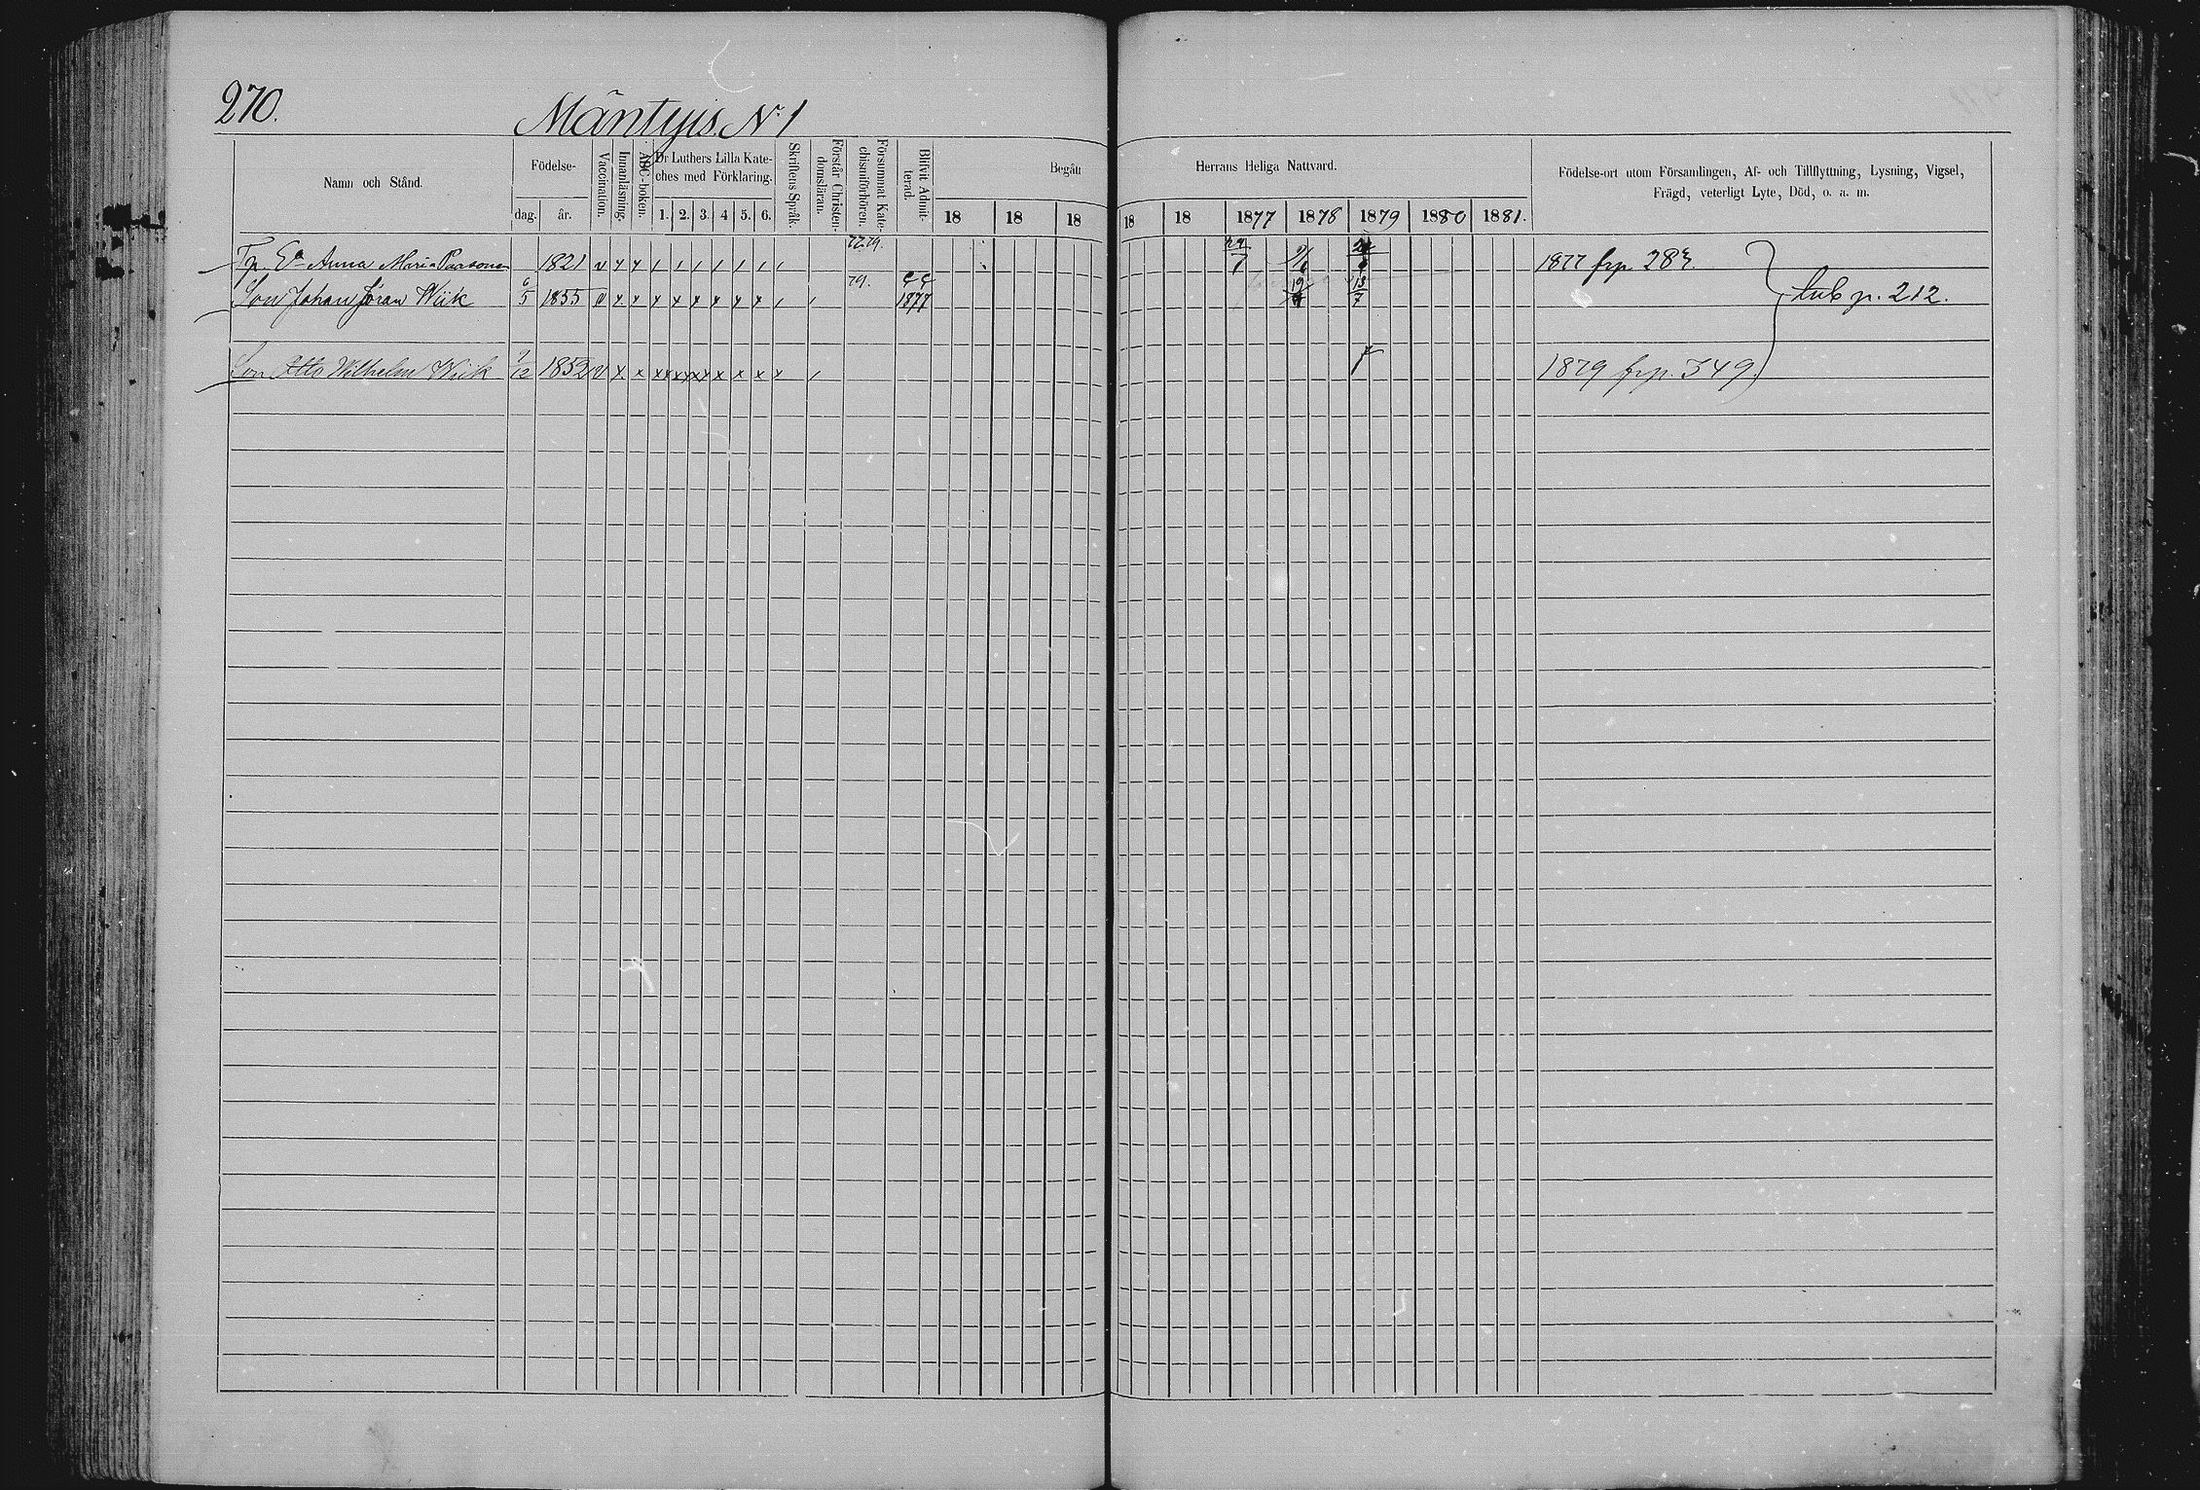 270.
Mäntyis N:o 1
Namn och Stånd.
Födelse-
dag.
år.
Vaccination.
Innanläsning.
ABC-boken.
Dr Luthers Lilla Kate-
ches med Förklaring.
1. 2. 3. 4 5. 6.
Skriftens Språk.
Förstår Christen-
domsläran.
Försummat Kate-
chismiförhören.
Blifvit Admit-
terad.
Begått
Herrans Heliga Nattvard.
18 18 18 18 18 1877 1878 1879 1880 1881.
Födelse-ort utom Församlingen, Af- och Tillflyttning, Lysning, Vigsel,
Frägd, veterligt Lyte, Död, o. a. m.
Anna Maria 1821 v x x / / / / / / / 77.79. 1877 frp.
Son Johan Göran Wiik 6/5 1855 v x x x x x x x x / / 79. 1877 19/ 13/7 p. 212.
Son Otto Wilhelm Wiik /12 1852 v x x x x x x x x x / 1879 frp. 549.